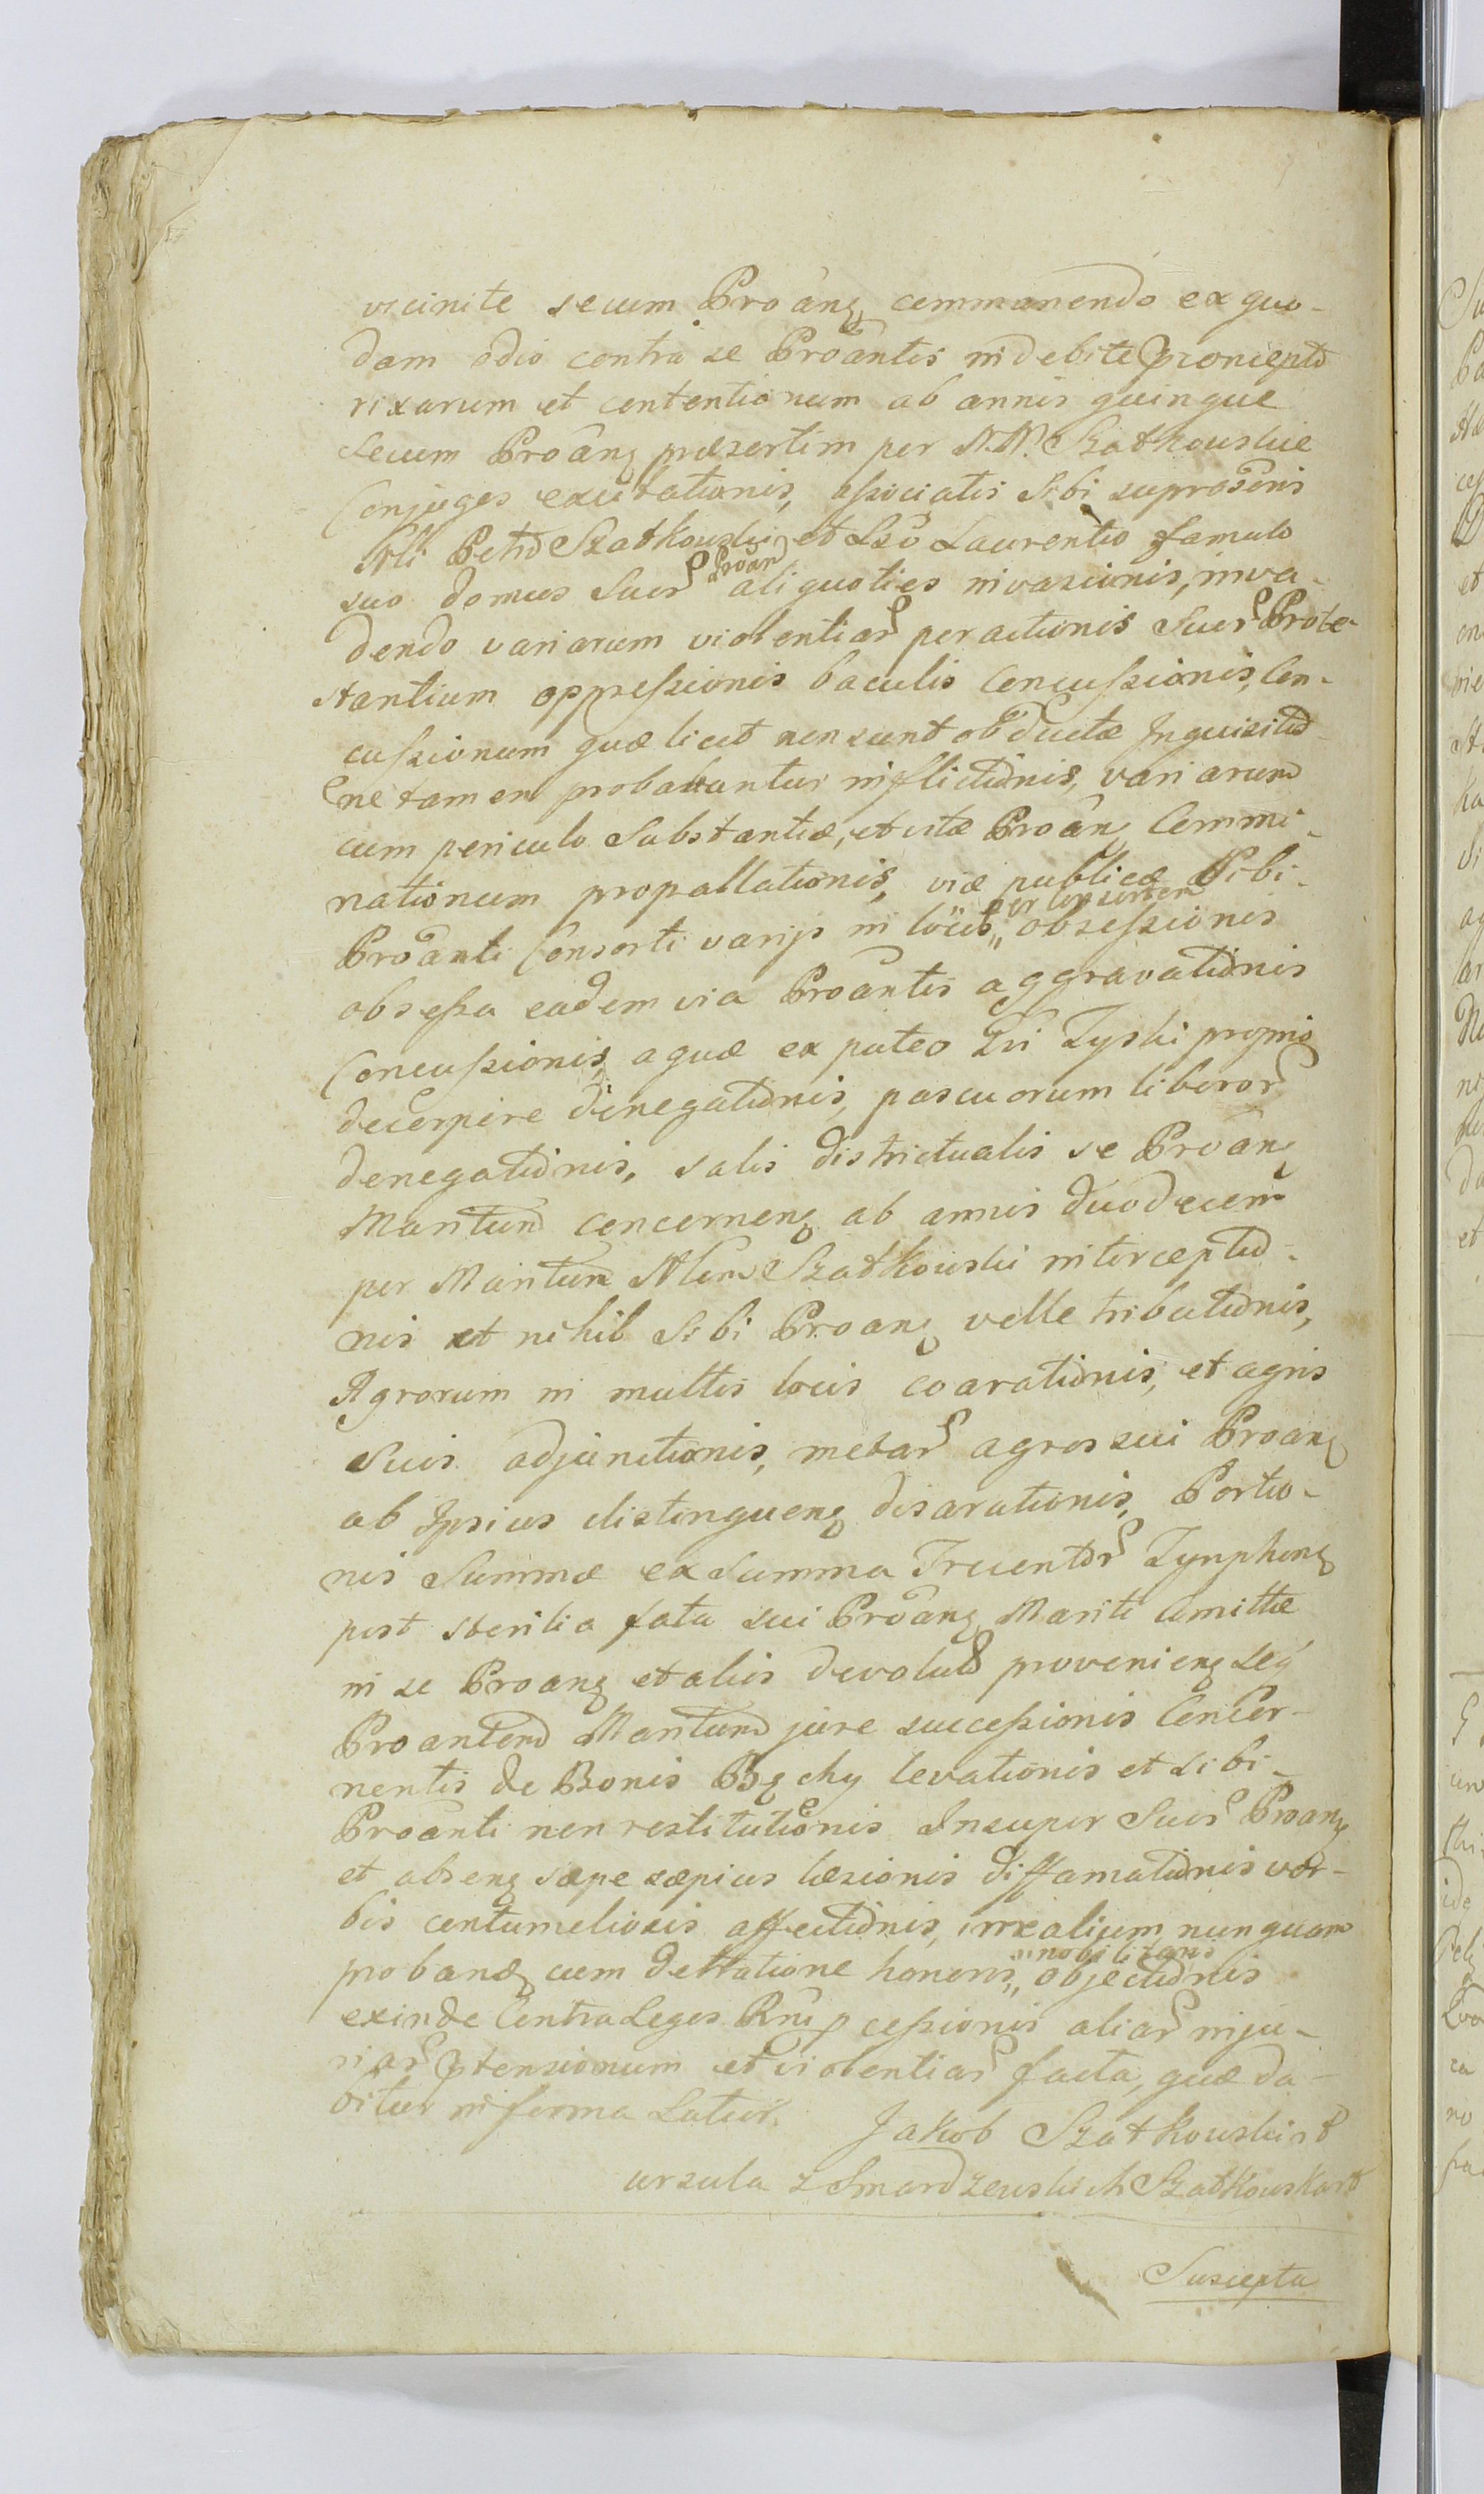 vicinite secum Proãnꝫ commanendo ex quo-
dam odio contra se Proãntes indebite concepto
rixarum et contentionum ab annis quinque
secum Proãnꝫ præsertim per N.N. Szatkowskie
Conjuges excitationis, associatis sibi
Nli Petro Szatkowski et Lso Laurentio famulo
suo domus Suor Proan aliquoties invasionis, inva-
dendo variarum violentiar peractionis Suor Prote-
stantium oppressionis baculis Concussionis, Con-
cussionum quæ licet non sunt obductæ Inquisitio-
ne tamen probabantur inflictionis, variarum
cum periculo Substantiæ, et vitæ Proãnꝫ Commi-
nationum propallationis, viæ publicæ Sibi-
Proãnti Consorti varijs in locis „per Consortem„ obsessionis
obsessa eadem via Proãntis aggravationis
Concussionis, aquæ ex puteo Tyski proprio
decerpere denegationis, pascuorum liberor
denegationis, salis districtualis se Proãnꝫ
Maritum concernenꝫ ab annis duodecem
per Maritum Nlem Szatkowski interceptio-
nis et nihil Sibi Proanꝫ velle tribuationis,
Agrorum in multis locis coarationis, et agris
Suis adjunctionis, metar agros sui Proanꝫ
ab Ipsius distinguenꝫ disarationis, Portio-
nis Summæ ex Summa Trecentor Tynphonꝫ
post sterilia fata sui Proãnꝫ Mariti Amittæ
in se Proanꝫ et alios devolut provenienꝫ seq
Proantem Maritum jure successionis Concer-
nentis de Bonis levationis et sibi-
Proãnti non restitutionis Insuper Suor Proanꝫ
et absenꝫ sæpe sæpius læsionis diffamationis ver-
bis contumeliosis affectionis, irrealium nunquam
probandꝫ cum detratione honoris „nobilitaris„ objectionis
exinde Contra Leges Rni cessionis aliar inju-
riar prætensionum et violentiar facta, quæ da-
bitur in forma Latior. Jakob Szatkowski
ursula z Smardzewskich Szatkowska
Suscepta